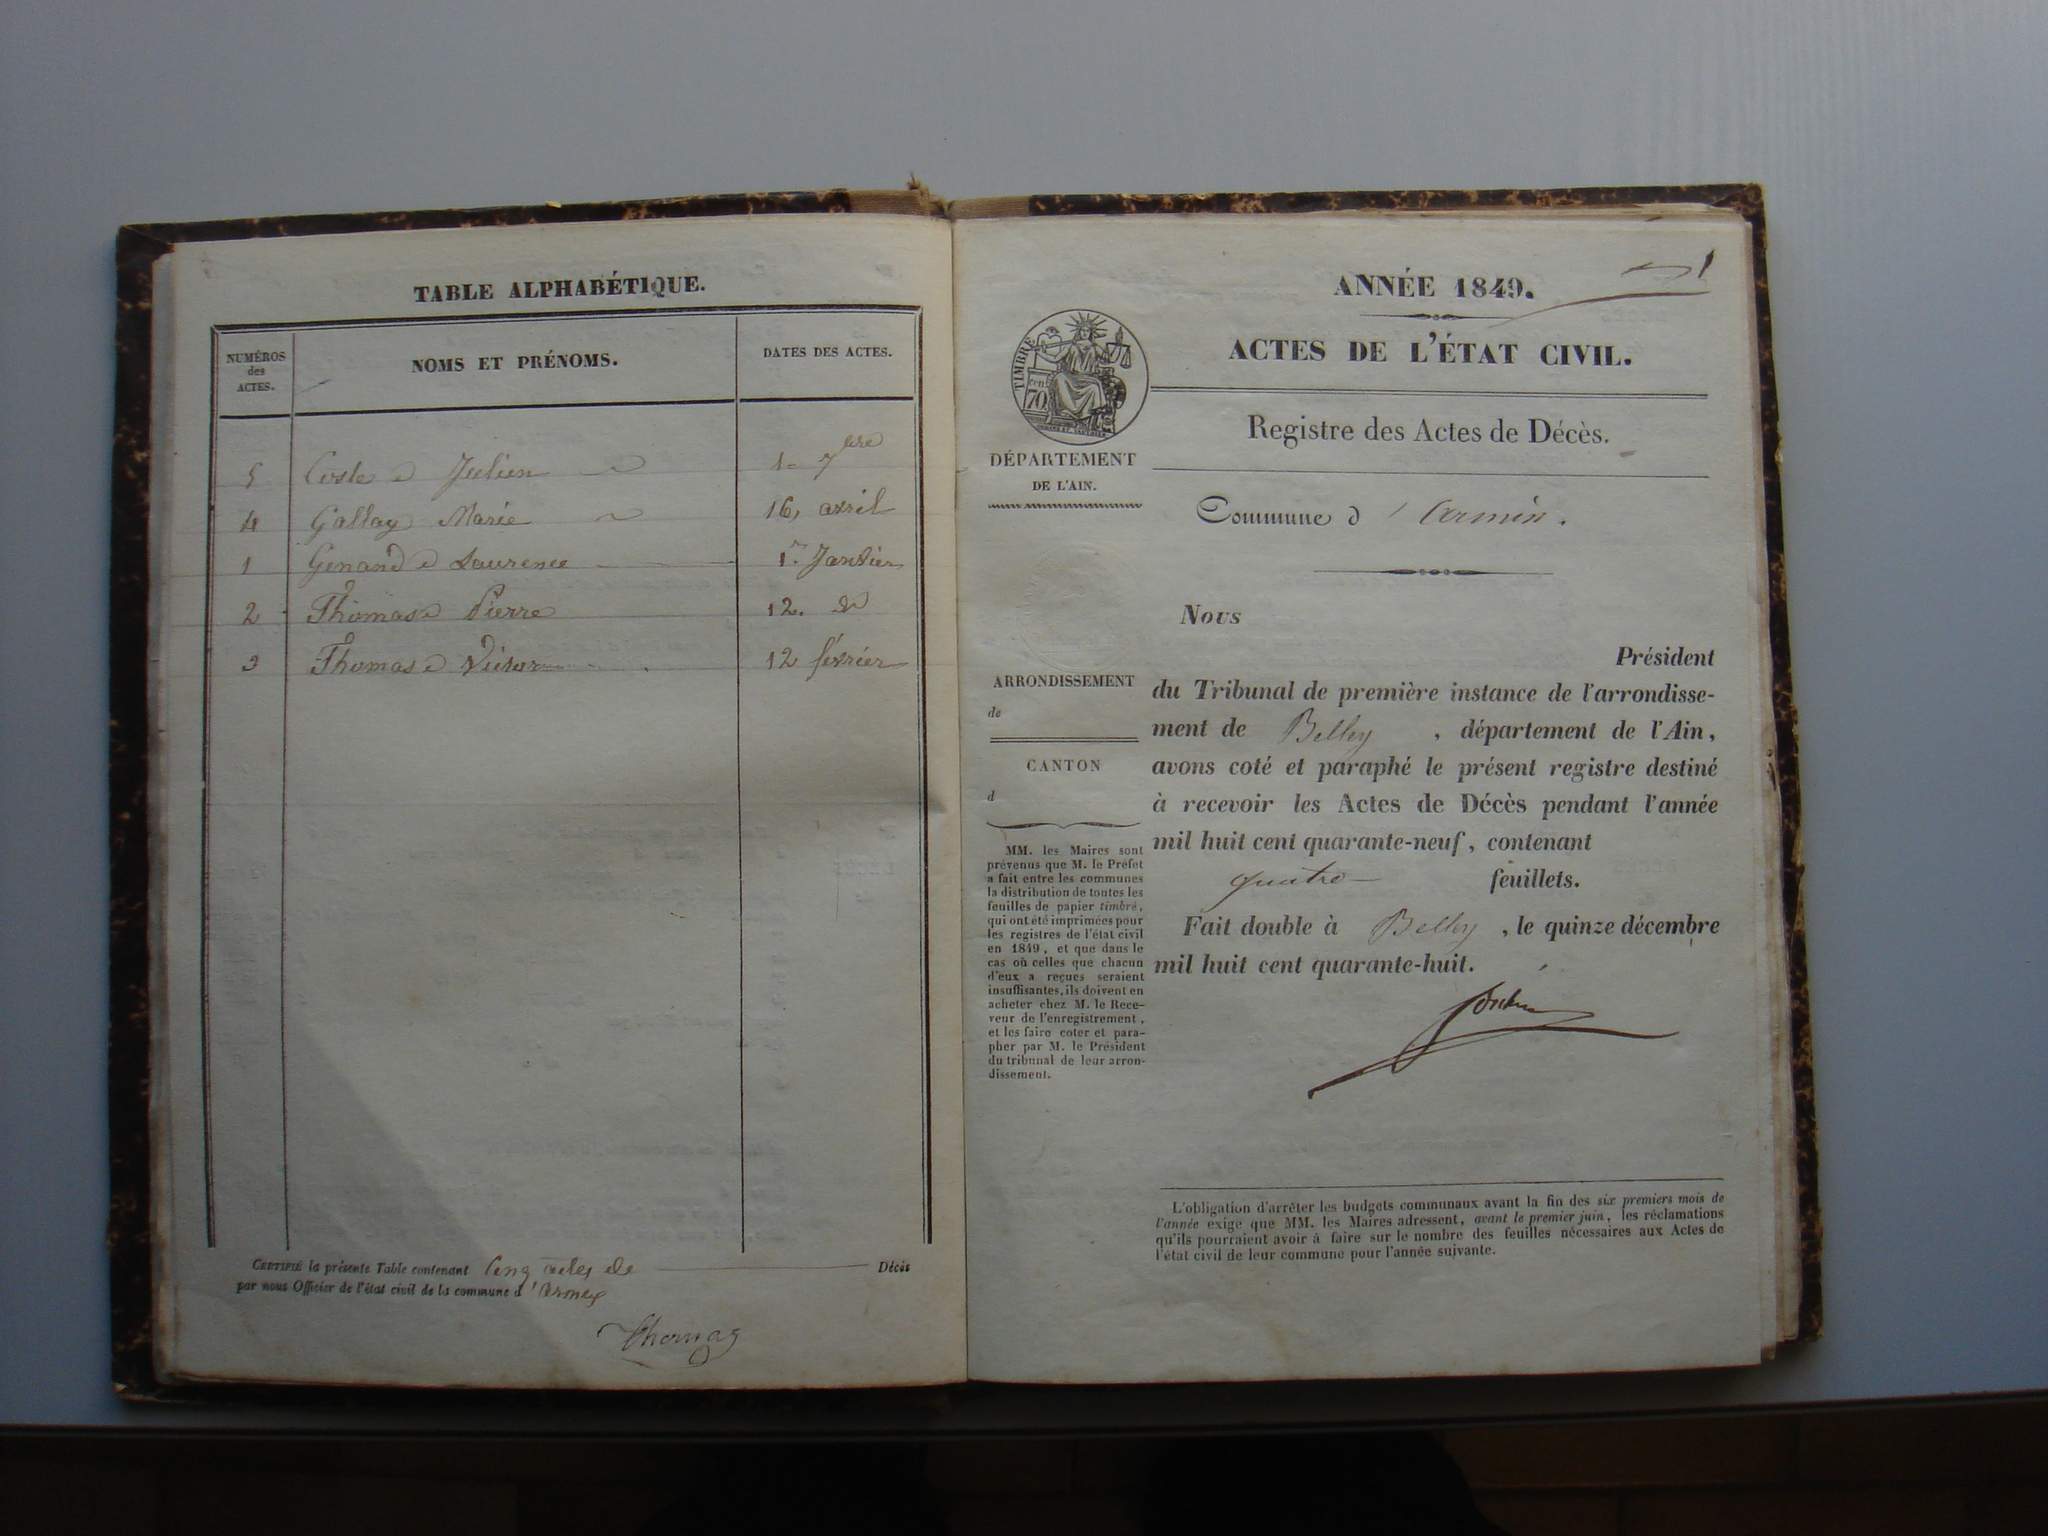 TABLE ALPHABÉTIQUE.
NUMÉROS
des
ACTES.
NOMS ET PRÉNOMS.
DATES DES ACTES.
5 Coste Julien 1 7bre
4 Gallay Marie 16, avril
1 Genand Laurence 1er Janvier
2 Thomas Pierre 12. d
3 Thomas Victor 12 février
CERTIFIÉ la présente Table contenant Cinq actes de Décès
par nous Officier de l'état civil de la commune d'Armex
Thomas
1
ANNÉE 1849.
ACTES DE L'ÉTAT CIVIL.
TIMBRE
70
cen
DÉPARTEMENT
DE L'AIN.
Registre des Actes de Décès.
Commune d'
Nous
Président
du Tribunal de première instance de l'arrondisse-
ment de Belley, département de l'Ain,
avons coté et paraphé le présent registre destiné
à recevoir les Actes de Décès pendant l'année
mil huit cent quarante-neuf, contenant
quatre feuillets.
Fait double à Belley, le quinze décembre
mil huit cent quarante-huit.
ARRONDISSEMENT
de
CANTON
d
MM. les Maires sont
prévenus que M. le Préfet
a fait entre les communes
la distribution de toutes les
feuilles de papier timbré,
qui ont été imprimées pour
les registres de l'état civil
en 1849, et que dans le
cas où celles que chacun
d'eux a reçues seraient
insuffisantes, ils doivent en
acheter chez M. le Rece-
veur de l'enregistrement,
et les faire coter et para-
pher par M. le Président
du tribunal de leur arron-
dissement.
L'obligation d'arrêter les budgets communaux avant la fin des six premiers mois de
l'année exige que MM. les Maires adressent, avant le premier juin, les réclamations
qu'ils pourraient avoir à faire sur le nombre des feuilles nécessaires aux Actes de
l'état civil de leur commune pour l'année suivante.